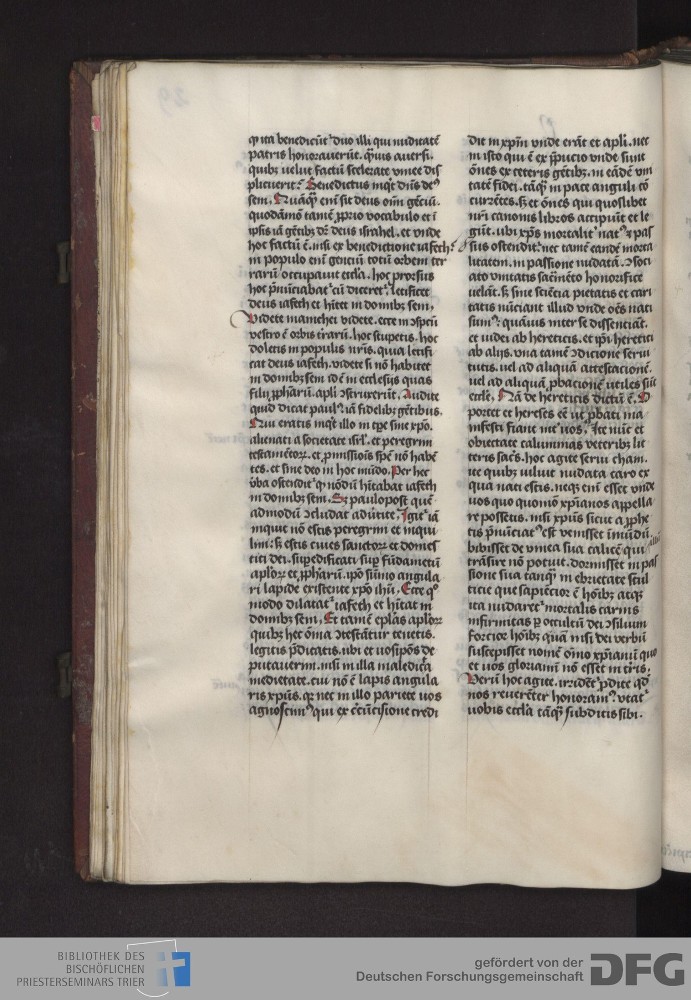 qƺ ita benedicūt͛ duo illi qui nuditatē
patris honorauerūt. qͣuis auersi.
quibꝫ uelut factū scelerate vinee dis
plicuerit. Benedictus inqͥt dn̄s deꝰ
sem. Quāqͣꝫ enī sit deus om̄i gētiū.
quodāmō tamē ꝓprio vocabulo et ī
ip̄sis iā gētibꝫ dr̄ deus israhel. et vnde
hoc factū ē. nisi ex benedictione iafeth.
in populo enī gentiū totū orbem ter
rarū occupauit eccl̄a. hoc prorsus
hoc p̄nūciabat͛ cū diceret͛. letificet
deus iafeth et hitet in domibꝫ sem.
Videte manichei videte. ecce in ↄspcū
vestro ē orbis t͛rarū. hoc stupetis. hoc
doletis in populis nr̄is. quia letifi
cat deus iafeth. videte si nō habitet
in domibꝫ sem id ē in ecclesijs quas
filij ꝓph̄arū. apl̄i ↄstruxerūt. Audite
quid dicat paulꝰ. iā fidelibꝫ gētibus.
Qui eratis inqͥt illo in tp̄e sine xp̄o.
alienati a societate isrl̄. et peregrini
testamētoꝝ. et ꝓmissiois spē nō habē
tes. et sine deo in hoc mūdo. Per hec
v̄ba ostendit͛ qƺ nōdū hītabat iafeth
in domibꝫ sem. Sꝫ paulopost quē
admodū ↄcludat aduertite. Igit͛ iā
inquit nō estis peregrini et inqui
lini: sꝫ estis ciues sanctoꝝ et domes
tici dei. sup̄edificati sup̄ fūdametū
apl̄oꝝ et ꝓph̄arū. ip̄o sūmo angula
ri lapide existente xp̄o ih̄u. Ecce qͦ
modo dilatat͛ iafeth et hītat in
domibꝫ sem. Et tamē ep̄las apl̄oꝝ
quibꝫ hec om̄ia ↄtestātur tenetis.
legitis p̄dicatis. ubi et uos ip̄ōs de
putauerim. nisi in illa maledicta
medietate. cui nō ē lapis angula
ris xp̄us. qꝛ nec in illo pariete uos
agnoscimꝰ qui ex cͥcūcisione credi
dit in xp̄m vnde erāt et apl̄i. nec
in isto qui ē ex p̄pucio vnde sunt
ōnes ex ceteris gētibꝫ. in eādē vni
tatē fidei. tāqͣꝫ in pace anguli cō
currētes. sꝫ et ōnes qui quoslibet
nr̄i canonis libros accipiūt et le
gūt. ubi xp̄s mortalit͛ natꝰ ⁊ pas
sus ostendit͛. nec tamē eandē morta
litatem. in passione nudatā. ↄsoci
ato vnitatis sacͣmēto honorifice
uelāt. sꝫ sine sciētia pietatis et cari
tatis nūciant illud vnde oēs nati
sumꝰ. quāuis inter se dissenciāt.
et iudei ab hereticis. et ip̄i heretici
ab alijs. vna tamē ↄdicione serui
tutis. uel ad aliquā attestacionē.
uel ad aliquā ꝓbacionē utiles sūt
eccl̄e. Nā de hereticis dictū ē. O
portet et hereses eē ut ꝓbati ma
nifesti fiant int͛ uos. Ite nūc et
obiectate calumnias veteribꝫ lit
teris sacͥs. hoc agite serui cham.
ite quibꝫ viluit nudata caro ex
qua nati estis. neqꝫ enī essēt vnde
uos quo quomō xp̄ianos appella
re possetis. nisi xp̄us sicut a ꝓphe
tis p̄nūciatꝰ est venisset in mūdū.
bibisset de vinea sua calicē qui illū
trāsire nō potuit. dormisset in pas
sione sua tanqͣꝫ in ebrietate stul
ticie que sapiēcior ē hoībꝫ atqꝫ
ita nudaret͛ mortalis carnis
infirmitas ꝑ occultū dei ↄsilium
forcior hoībꝫ quā nisi dei verbū
suscepisset nomē om̄o xp̄ianū quo
et uos gloriamī nō esset in t͛ris.
Verū hoc agite. irridēt͛ ꝓdite qd̄
nos reuerēter honoramꝰ. vtat͛
uobis eccl̄a tāqͣꝫ subditis sibi.
BIBLIOTHEK DES
BISCHÖFLICHEN
PRIESTERSEMINARS TRIER
gefördert von der
Deutschen Forschungsgemeinschaft
DFG